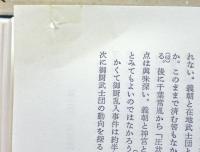 れない。義朝と在地武士団と
か。このままで済む筈もなか
る。後に千葉常胤から「圧状
点は興味深い。義朝と神宮と
とみてもよいのではなかろう
かくて御厨乱入事件は約半
次に御厨武士団の動向を探る